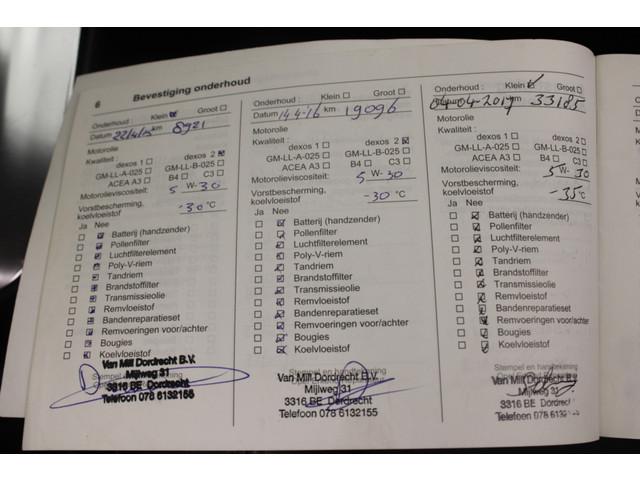 6 Bevestiging onderhoud
Onderhoud: Klein Groot
Datum 22/4/15 km 8921
Motorolie
Kwaliteit:
dexos 1 dexos 2
GM-LL-A-025 GM-LL-B-025
ACEA A3 B4 C3
Motorolieviscositeit:
5 W-30
Vorstbescherming,
koelvloeistof -30 °C
Ja Nee
Batterij (handzender)
Pollenfilter
Luchtfilterelement
Poly-V-riem
Tandriem
Brandstoffilter
Transmissieolie
Remvloeistof
Bandenreparatieset
Remvoeringen voor/achter
Bougies
Koelvloeistof
Van Mill Dordrecht B.V.
Mijlweg 31
3316 BE Dordrecht
Telefoon 078 6132155
Onderhoud: Klein Groot
Datum 14-4-16 km 19096
Motorolie
Kwaliteit:
dexos 1 dexos 2
GM-LL-A-025 GM-LL-B-025
ACEA A3 B4 C3
Motorolieviscositeit:
5 W-30
Vorstbescherming,
koelvloeistof -30 °C
Ja Nee
Batterij (handzender)
Pollenfilter
Luchtfilterelement
Poly-V-riem
Tandriem
Brandstoffilter
Transmissieolie
Remvloeistof
Bandenreparatieset
Remvoeringen voor/achter
Bougies
Koelvloeistof
Stempel en handtekening
Van Mill Dordrecht B.V.
Mijlweg 31
3316 BE Dordrecht
Telefoon 078 6132155
Onderhoud: Klein Groot
04-04-2017 km 33185
Motorolie
Kwaliteit:
dexos 1 dexos 2
GM-LL-A-025 GM-LL-B-025
ACEA A3 B4 C3
Motorolieviscositeit:
5 W-30
Vorstbescherming,
koelvloeistof -35 °C
Ja Nee
Batterij (handzender)
Pollenfilter
Luchtfilterelement
Poly-V-riem
Tandriem
Brandstoffilter
Transmissieolie
Remvloeistof
Bandenreparatieset
Remvoeringen voor/achter
Bougies
Koelvloeistof
Stempel en handtekening
Van Mill Dordrecht B.V.
Mijlweg 31
3316 BE Dordrecht
Telefoon 078 6132155